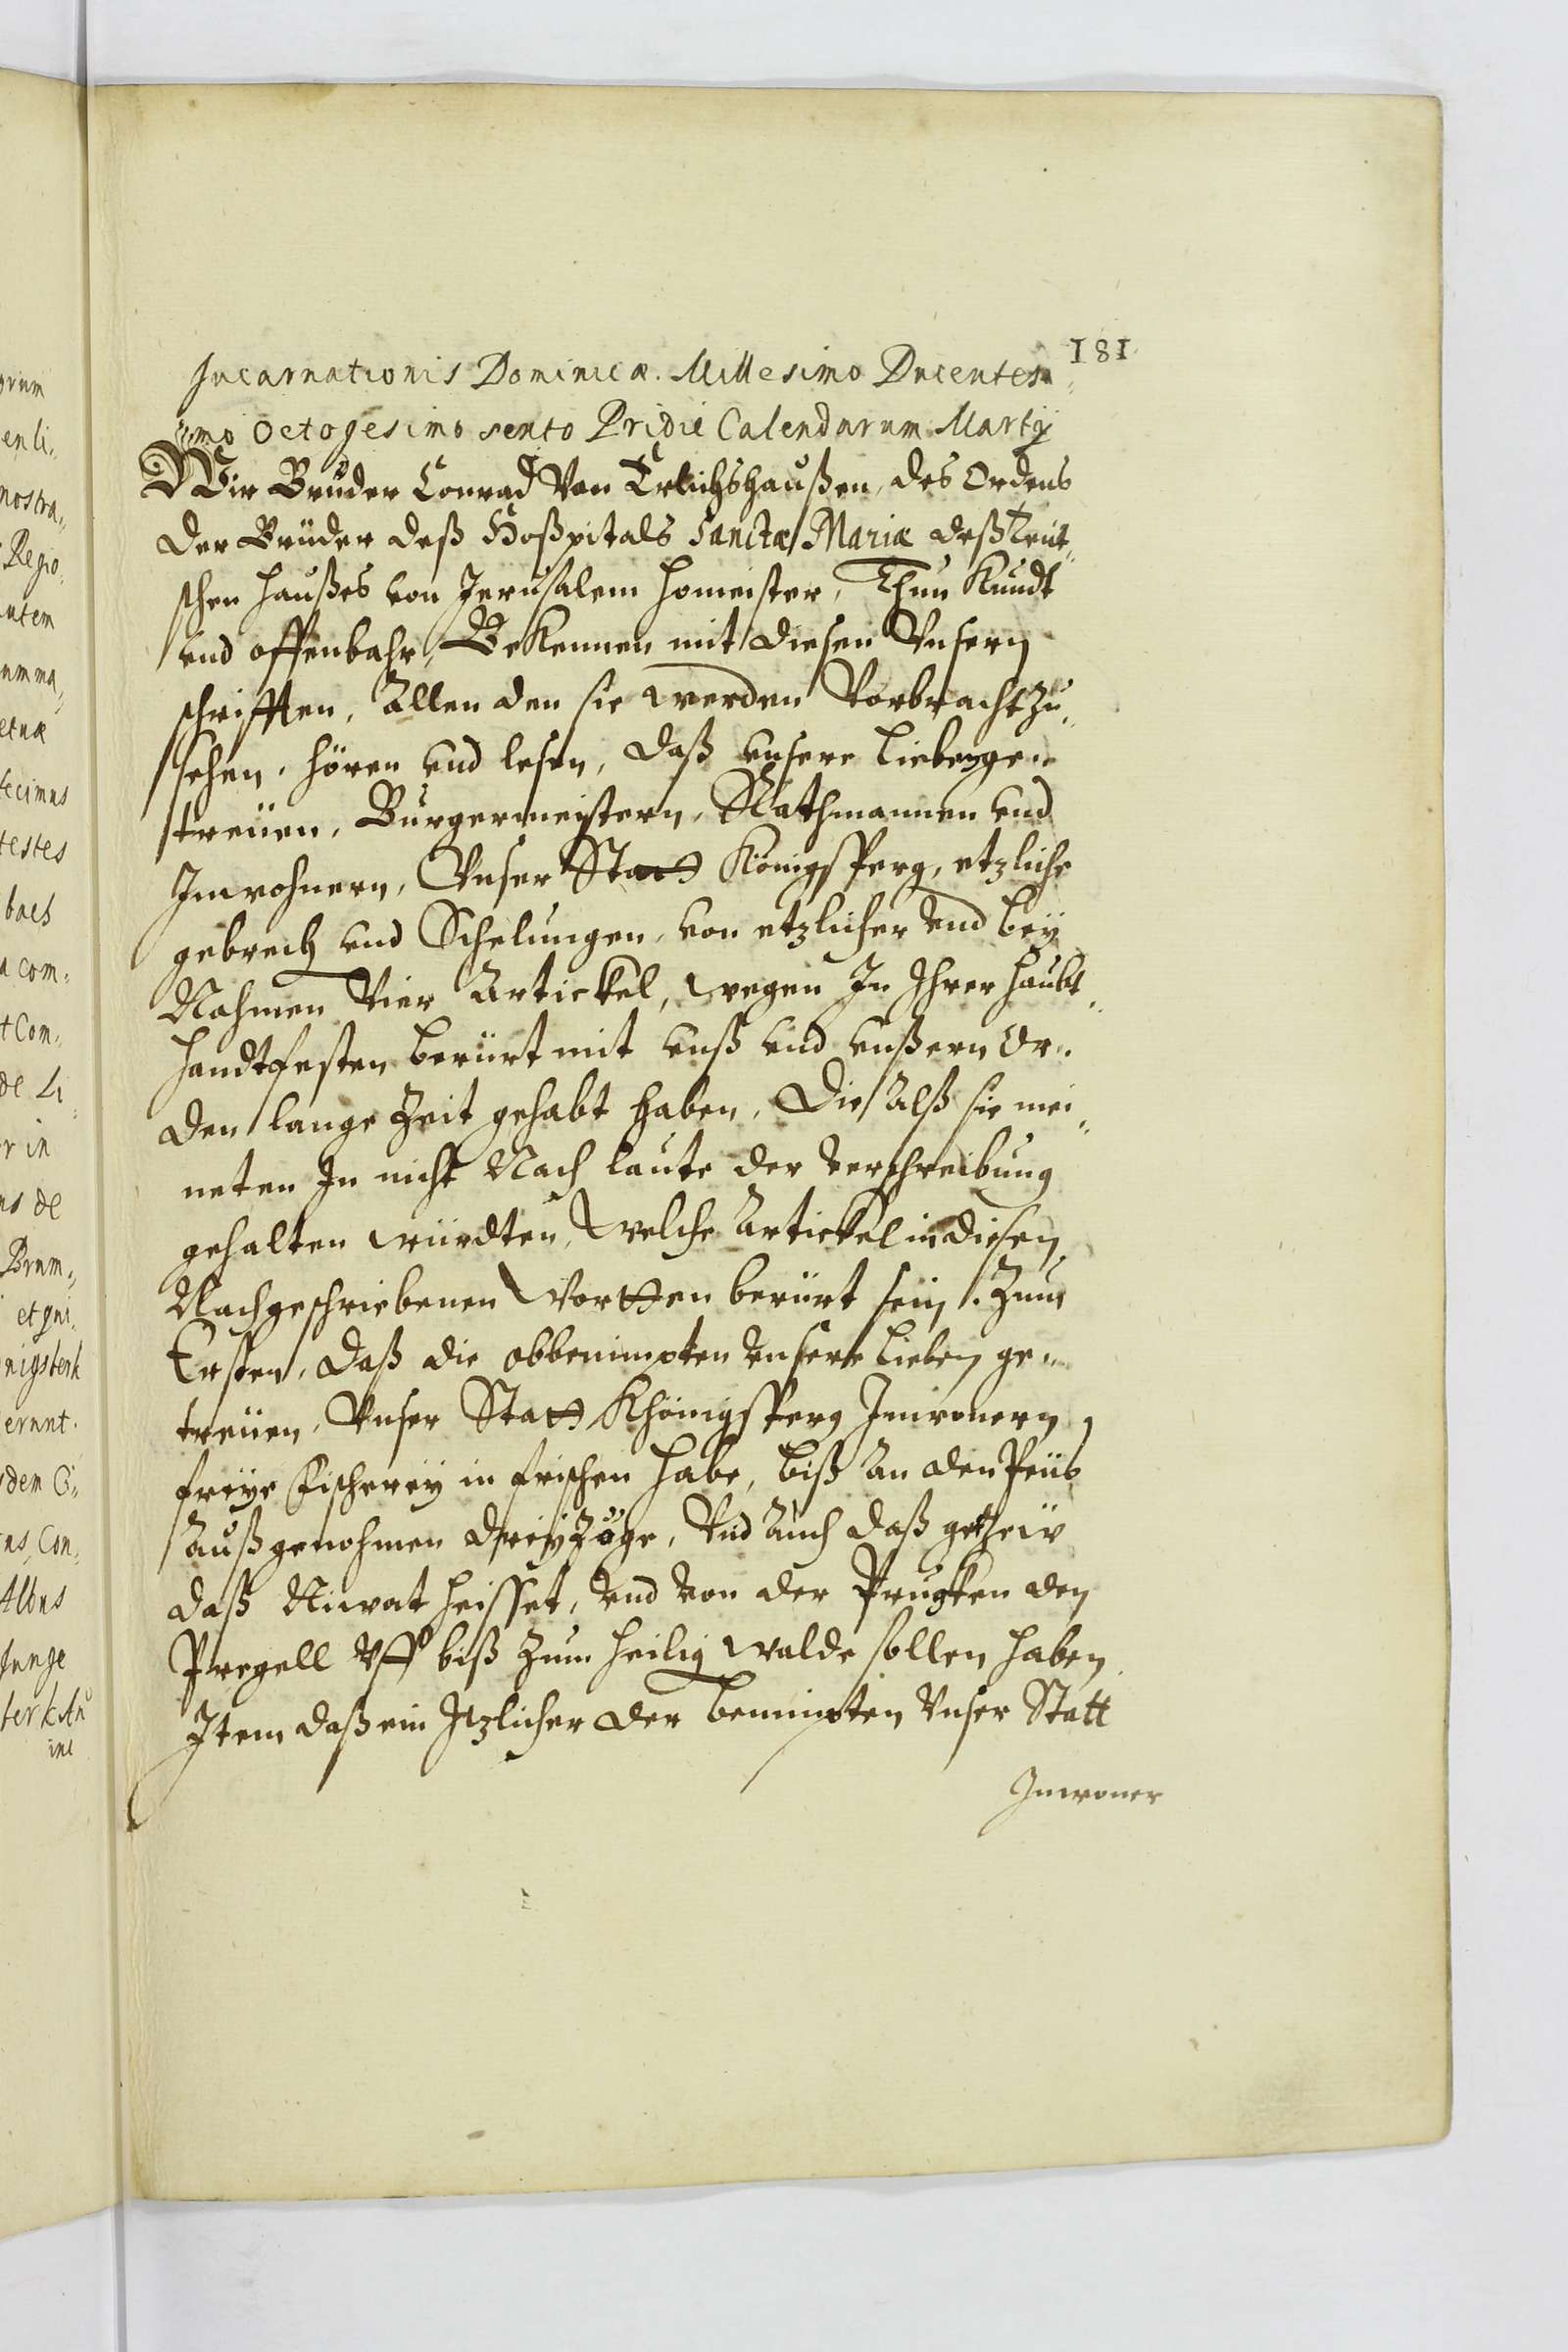 181
Incarnationis Dominicæ. Millesimo Ducentesi„
„mo Octogesimo sento Pridie Calendarum Martij
Wir Bruder Conrad Von Erlichshaußen, des Ordens
der Brüder deß Hoßpitals Sanctæ Mariæ deß teut„
schen Haußes von Jerusalem Homeister, Thun Kundt
vnd offenbahr, Bekennen mit diesen Vnsern
schrifften, Allen den sie werden Vorbracht zu„
sehen, hören vnd lesen, daß vnsere lieben ge„
treüen, Burgermeistern, Rathmannen vnd
Inwohnern, Vnser Statt Königsperg, etzliche
gebrech vnd Schelungen, von etzlicher vnd bey
Nahmen Vier Artickel, wegen In Ihrer Haubt„
handtfesten berürt mit vnß vnd vnßern Or„
den lange Zeit gehabt haben, Die Alß sie mei„
neten In nicht Nach laute der Verschreibung
gehalten würdten, Welche Artickel in diesen
Nachgeschriebenen Wortten berürt sein. Zum
Ersten, daß die obbenimpten Vnsere lieben ge„
treüen, Vnser Statt Khönigsperg Inwonern,
freye Fischerey in frischen Habe, biß An den
Außgenohmen drey Züge, Vnd Auch daß getzew
daß Niwat heisset, Vnd Von der Prugken den
Pregell Vff biß Zum heilig walde sollen haben
Item daß ein Itzlicher der benimpten Vnser Statt
Inwoner
grum
enli„
nostra„
Regio„
autem
umma„
etnæ
tecimus
testes
baes
a com„
t Com„
de Li„
r in
us de
Brum„
et gni„
nigsberk
ernnt.
dem C„
ns, Con„
Albus
Junge